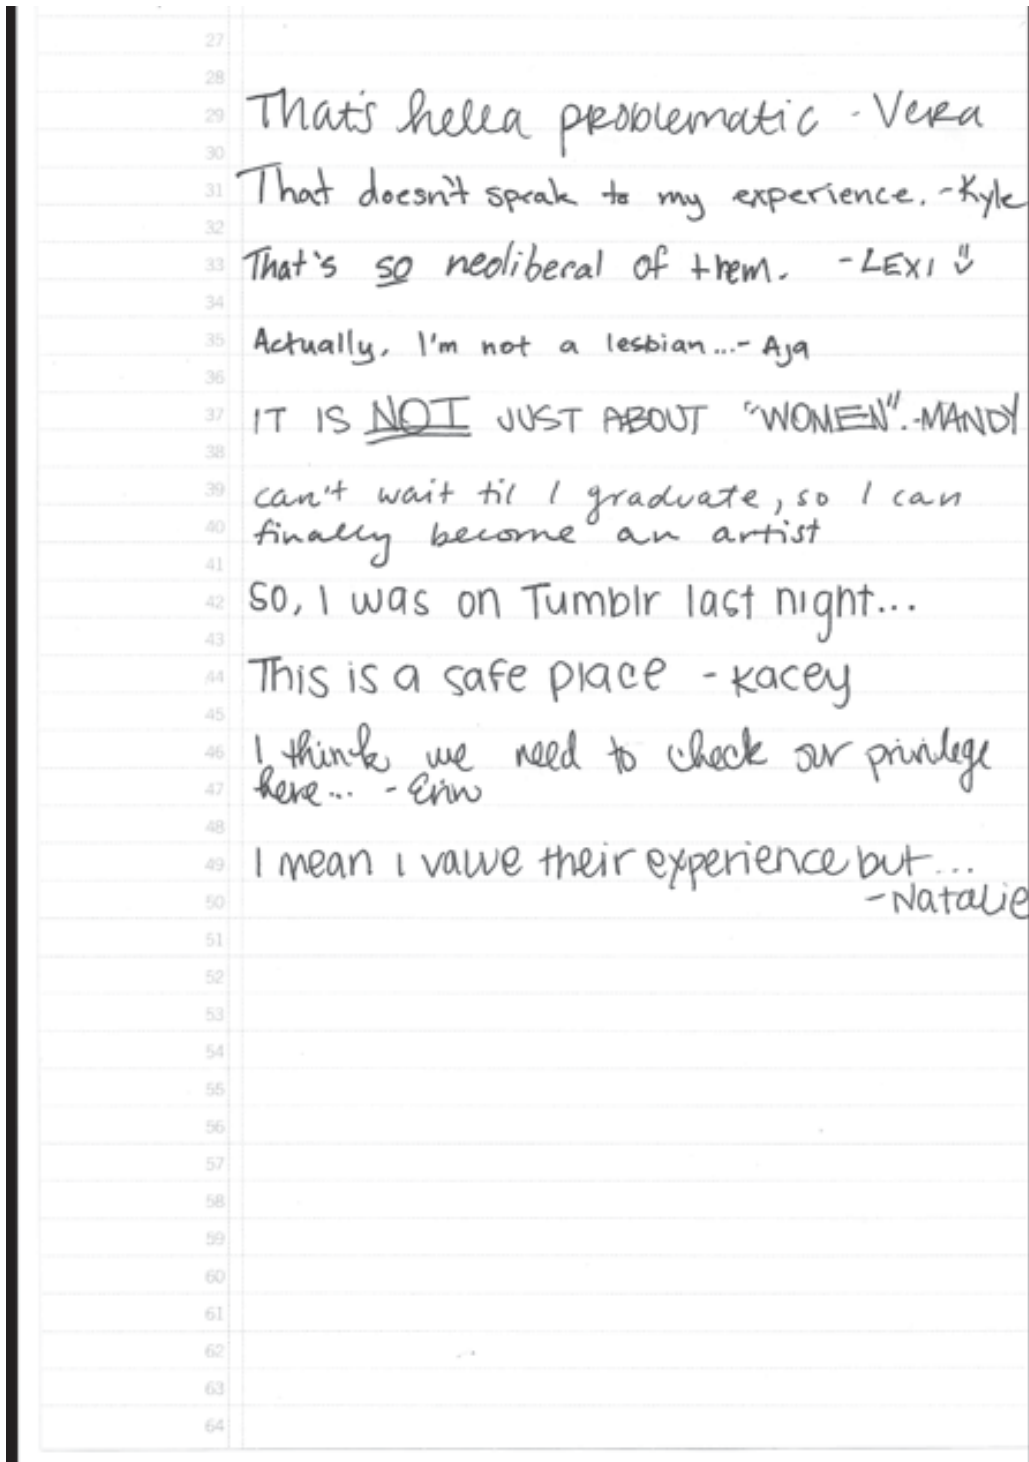 27
28
29 That's hella problematic - Vera
30
31 That doesn't speak to my experience. - Kyle
32
33 That's so neoliberal of them. - LEXI
34
35 Actually, I'm not a lesbian...- Aja
36
37 IT IS NOT JUST ABOUT "WOMEN". -MANDY
38
39 can't wait til I graduate, so I can
40 finally become an artist
41
42 So, I was on Tumblr last night...
43
44 This is a safe place - Kacey
45
46 I think we need to check our privilege
47 here... - Erin
48
49 I mean I value their experience but...
50 - Natalie
51
52
53
54
55
56
57
58
59
60
61
62
63
64